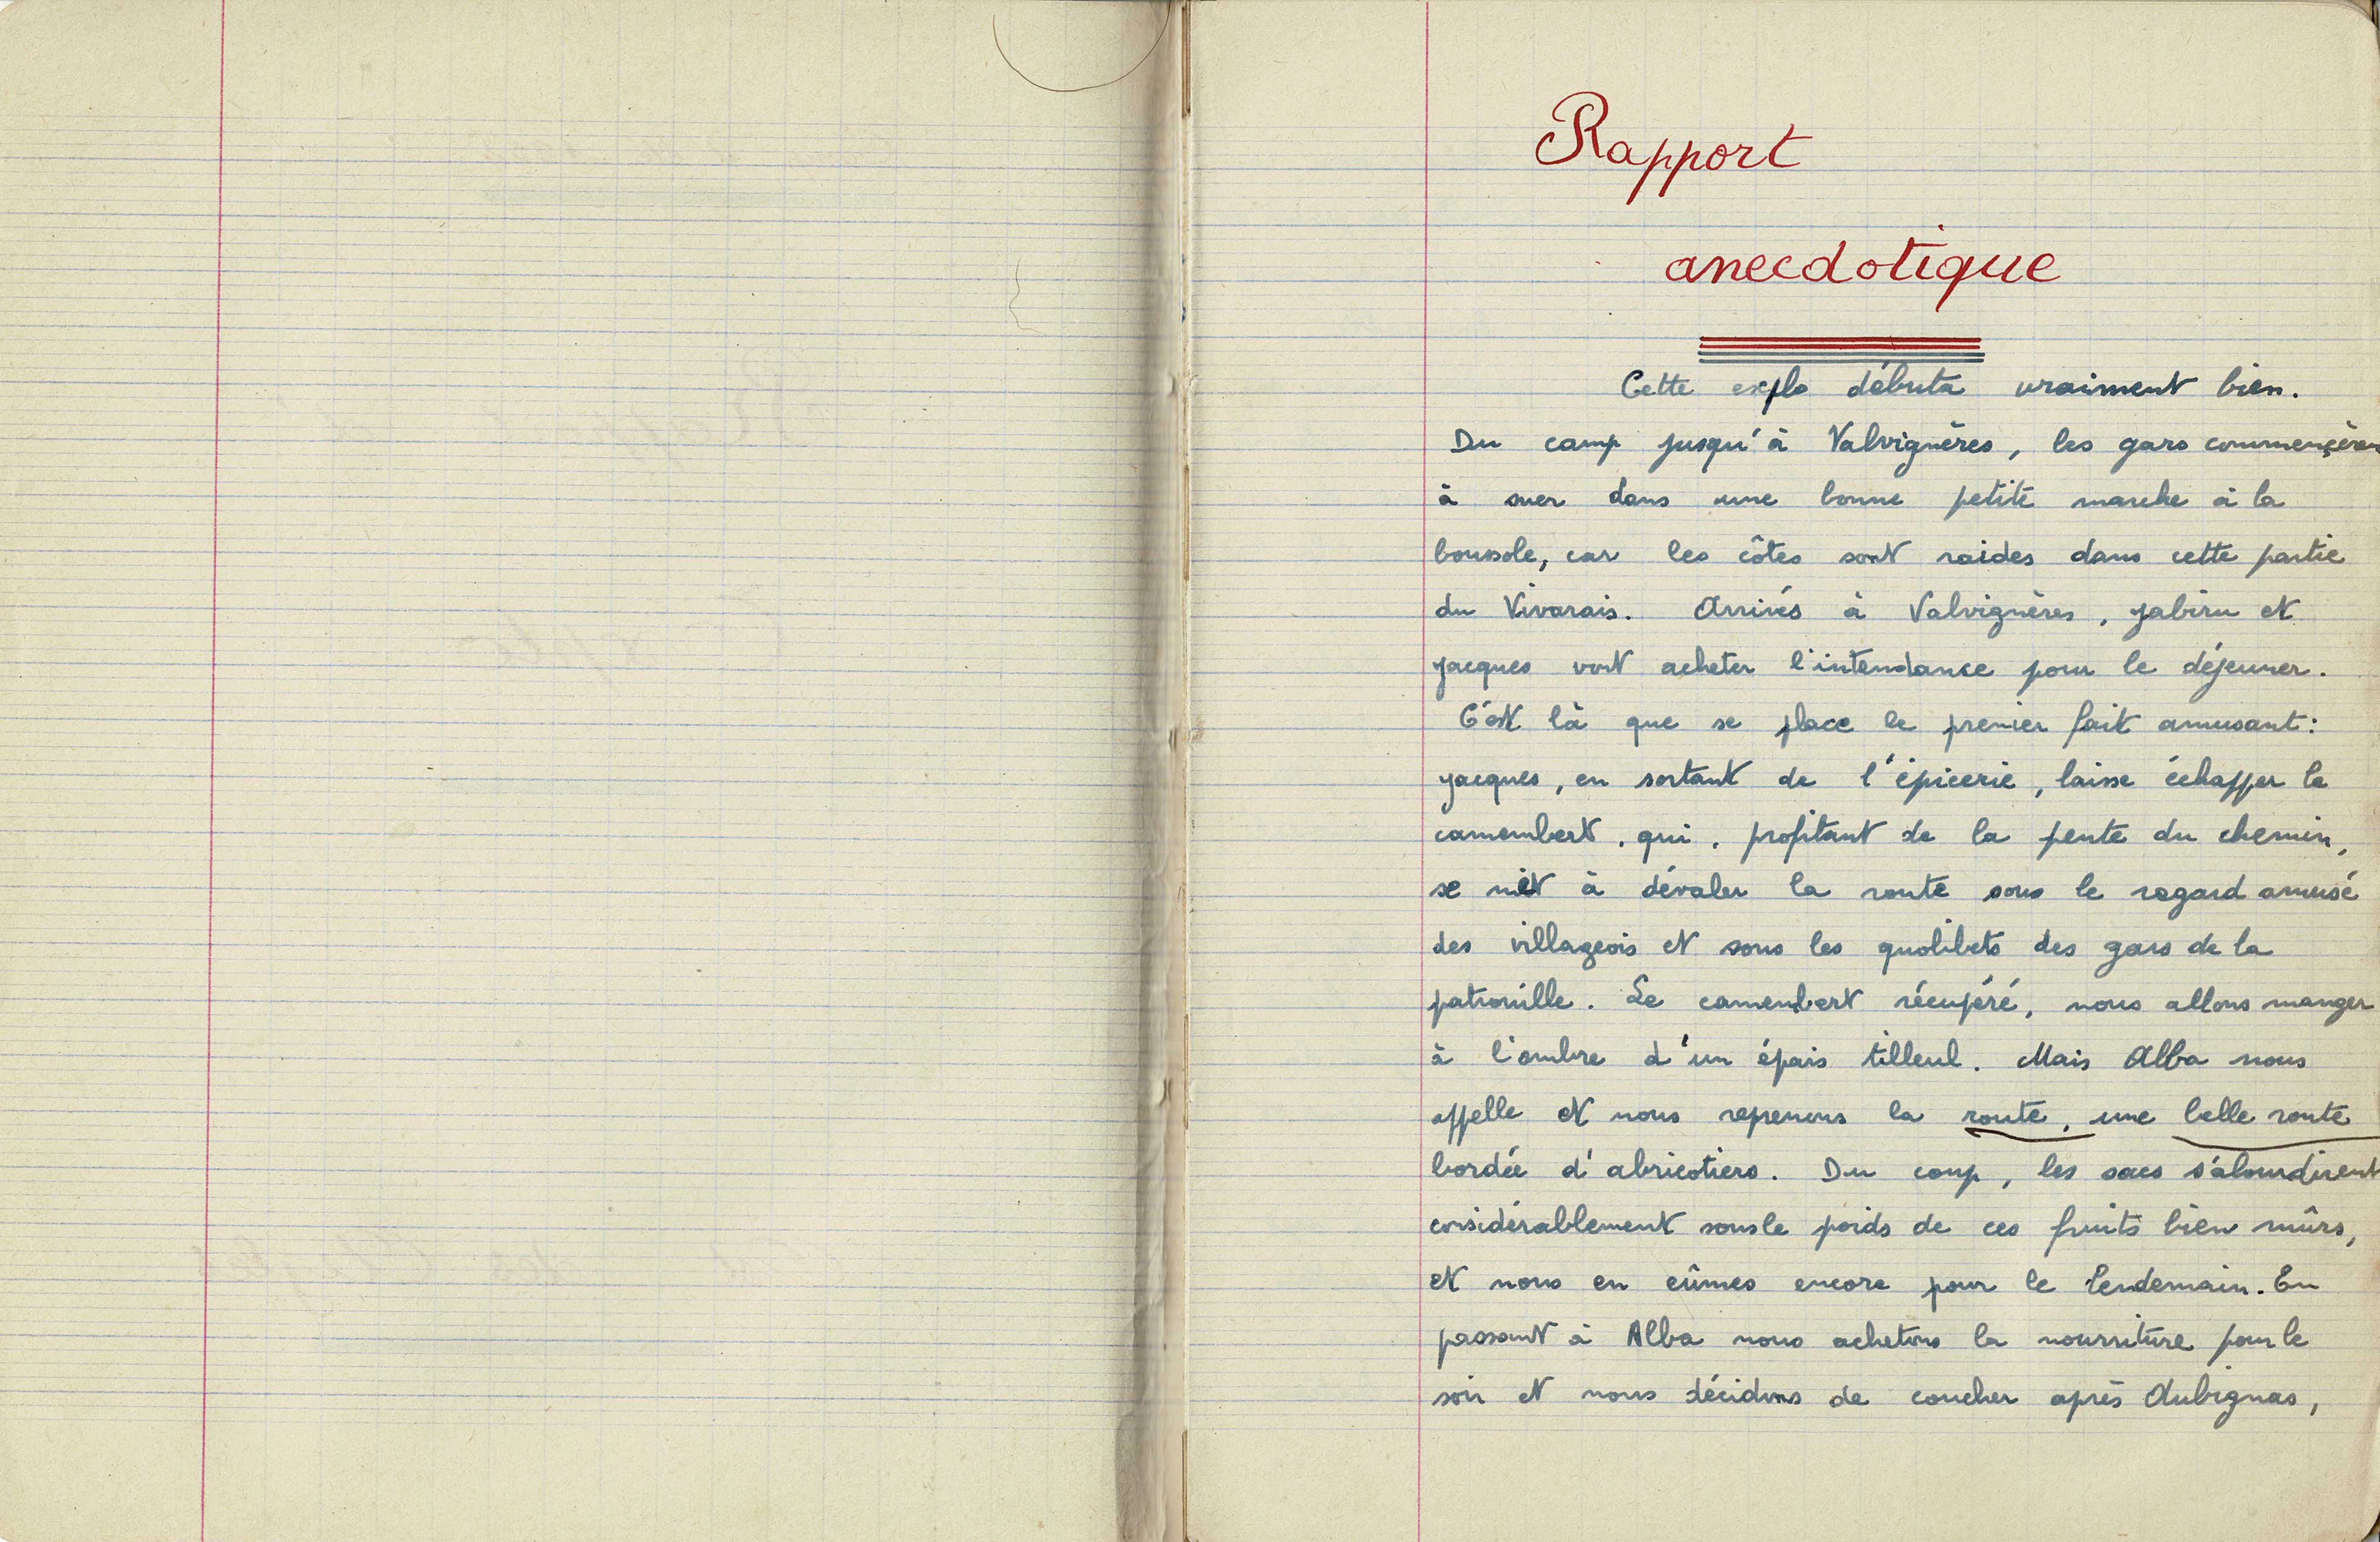 Rapport
anecdotique
Cette explo débuta vraiment bien.
Du camp jusqu'à Valvignères, les gars commençèren
à suer dans une bonne petite marche à la
boussole, car les côtes sont raides dans cette partie
du Vivarais. Arrivés à Valvignères, Jabiru et
Jacques vont acheter l'intendance pour le déjeuner.
C'est là que se place le premier fait amusant:
Jacques, en sortant de l'épicerie, laisse échapper le
camembert, qui, profitant de la pente du chemin,
se met à dévaler la route sous le regard amusé
des villageois et sous les quolibets des gars de la
patrouille. Le camembert récupéré, nous allons manger
à l'ombre d'un épais tilleul. Mais Alba nous
appelle et nous reprenons la route, une belle route
bordée d'abricotiers. Du coup, les sacs s'alourdirent
considérablement sous le poids de ces fruits bien mûrs,
et nous en eûmes encore pour le lendemain. En
passant à Alba nous achetons la nourriture pour le
soir et nous décidons de coucher après Aubignas,